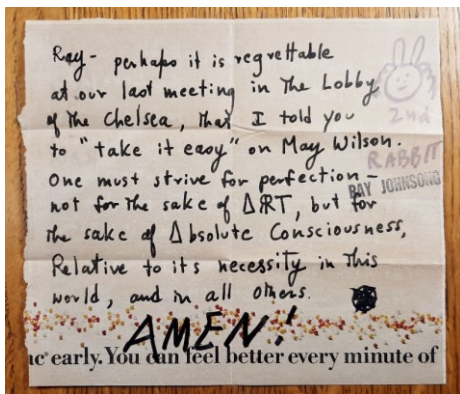 Ray - perhaps it is regrettable
at our last meeting in The Lobby
of The Chelsea, That I told you
2nd
to "take it easy" on May Wilson.
RABBIT
One must strive for perfection -
RAY JOHNSONG
not for The sake of ART, but for
The sake of Absolute Consciousness,
Relative to its necessity in This
world, and in all others.
AMEN!
early. You can feel better every minute of